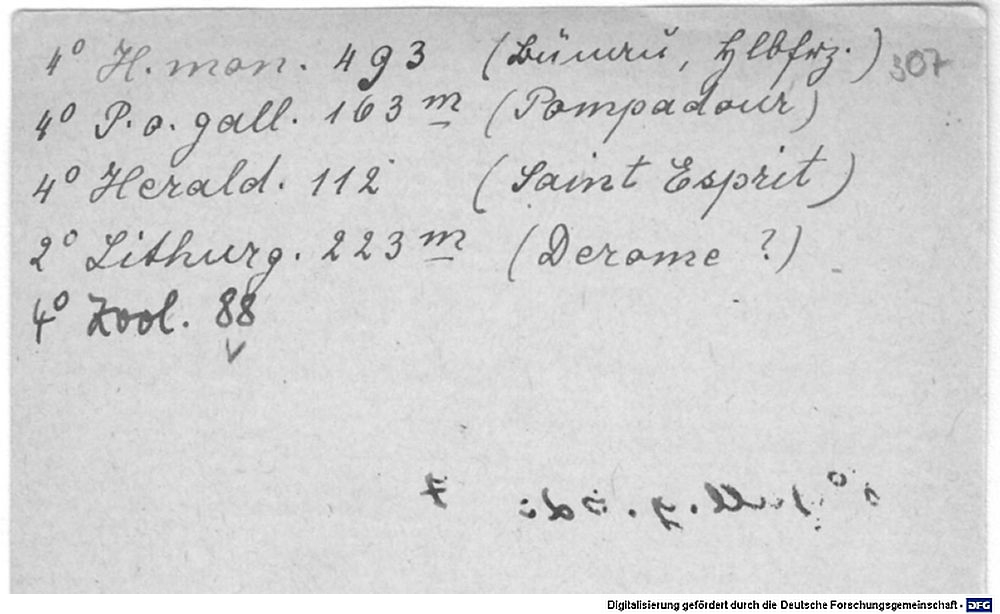 4° H. mon. 493 (Bünau, Hlbfrz.) 307
4° P. o. gall. 163 m (Pompadour)
4° Herald. 112 (Saint Esprit)
2° Lithurg. 223 m (Derome ?)
4° Zool. 88
Digitalisierung gefördert durch die Deutsche Forschungsgemeinschaft - DFG